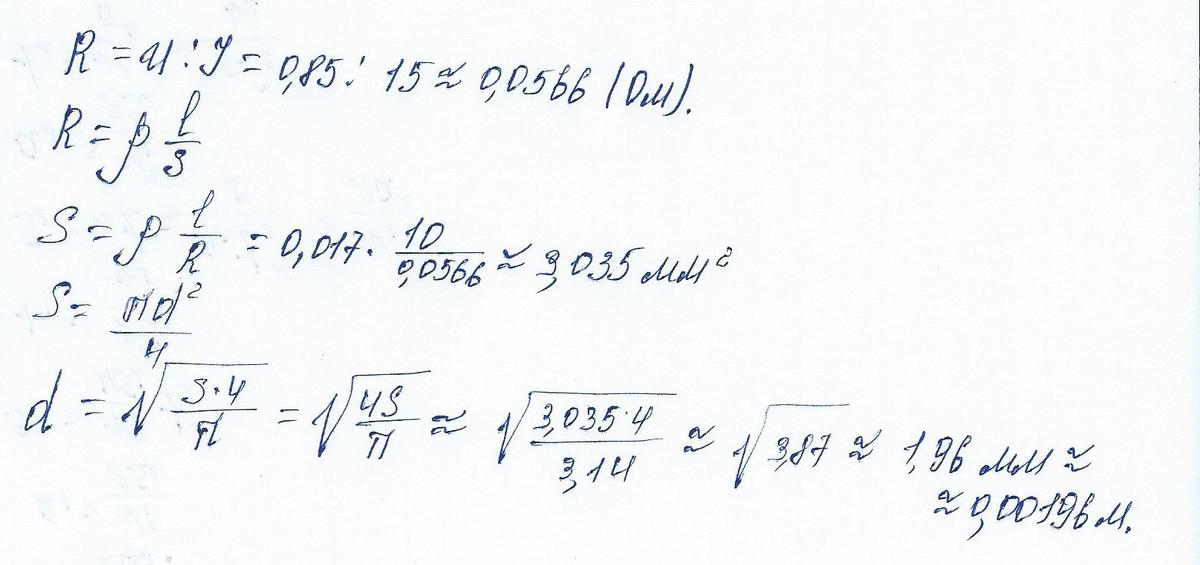 R = U : I = 0,85 : 15 ≈ 0,0566 (Ом).
R = ρ l/S
S = ρ l/R = 0,017 · 10/0,0566 ≈ 3,035 мм²
S = πd²/4
d = √(S·4/π) = √(4S/π) ≈ √(3,035·4/3,14) ≈ √3,87 ≈ 1,96 мм ≈
≈ 0,00196 м.